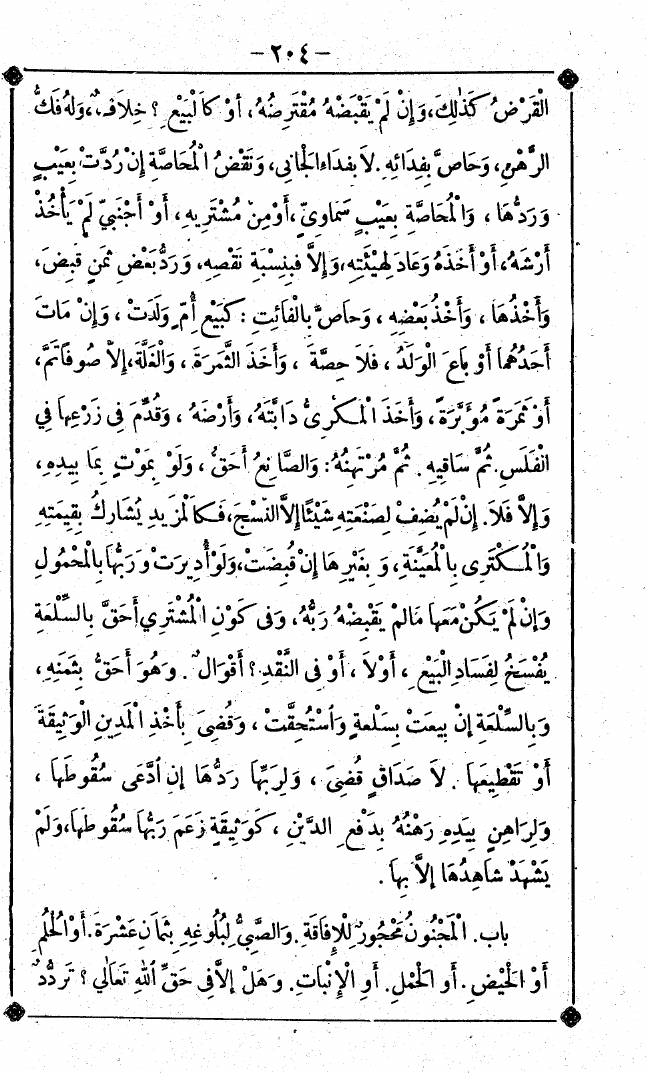 - ٢٠٤ -
الْقَرْضُ كَذٰلِكَ، وَإِنْ لَمْ يَقْبِضْهُ مُقْتَرِضُهُ، أَوْ كَالْبَيْعِ؟ خِلَافٌ، وَلَهُ فَكُّ
الرَّهْنِ، وَحَاصَّ بِفِدَائِهِ. لَا بِفِدَاءِ الْجَانِي، وَنَقْضُ الْمُحَاصَّةِ إِنْ رُدَّتْ بِعَيْبٍ
وَرَدُّهَا، وَالْمُحَاصَّةِ بِعَيْبٍ سَمَاوِيٍّ، أَوْ مِنْ مُشْتَرِيهِ، أَوْ أَجْنَبِيٍّ لَمْ يَأْخُذْ
أَرْشَهُ، أَوْ أَخَذَهُ وَعَادَ لِهَيْئَتِهِ، وَإِلَّا فَبِنِسْبَةِ نَقْصِهِ، وَرَدُّ بَعْضِ ثَمَنٍ قُبِضَ،
وَأَخْذُهَا، وَأَخْذُ بَعْضِهِ، وَحَاصَّ بِالْفَائِتِ: كَبَيْعِ أُمٍّ وَلَدَتْ، وَإِنْ مَاتَ
أَحَدُهُمَا أَوْ بَاعَ الْوَلَدَ، فَلَا حِصَّةَ، وَأَخَذَ الثَّمَرَةَ، وَالْغَلَّةَ، إِلَّا صُوفًا تَمَّ،
أَوْ ثَمَرَةً مُؤَبَّرَةً، وَأَخَذَ الْمُكْرِي دَابَّتَهُ، وَأَرْضَهُ، وَقُدِّمَ فِي زَرْعِهَا فِي
الْفَلَسِ. ثُمَّ سَاقِيهِ. ثُمَّ مُرْتَهِنُهُ: وَالصَّانِعُ أَحَقُّ، وَلَوْ بِمَوْتٍ بِمَا بِيَدِهِ،
وَإِلَّا فَلَا. إِنْ لَمْ يُضِفْ لِصَنْعَتِهِ شَيْئًا إِلَّا النَّسْجَ، فَكَالْمَزِيدِ يُشَارِكُ بِقِيمَتِهِ
وَالْمُكْتَرِي بِالْمُعَيَّنَةِ، وَبِغَيْرِهَا إِنْ قُبِضَتْ، وَلَوْ أُدِيرَتْ وَرَبُّهَا بِالْمَحْمُولِ
وَإِنْ لَمْ يَكُنْ مَعَهَا مَالَمْ يَقْبِضْهُ رَبُّهُ، وَفِي كَوْنِ الْمُشْتَرِي أَحَقَّ بِالسِّلْعَةِ
يُفْسَخُ لِفَسَادِ الْبَيْعِ، أَوْ لَا، أَوْ فِي النَّقْدِ؟ أَقْوَالٌ. وَهُوَ أَحَقُّ بِثَمَنِهِ،
وَبِالسِّلْعَةِ إِنْ بِيعَتْ بِسِلْعَةٍ وَاُسْتُحِقَّتْ، وَقُضِيَ بِأَخْذِ الْمَدِينِ الْوَثِيقَةَ
أَوْ تَقْطِيعِهَا. لَا صَدَاقٍ قُضِيَ، وَلِرَبِّهَا رَدُّهَا إِنِ اُدَّعَى سُقُوطَهَا،
وَلِرَاهِنٍ بِيَدِهِ رَهْنُهُ بِدَفْعِ الدَّيْنِ، كَوَثِيقَةٍ زَعَمَ رَبُّهَا سُقُوطَهَا، وَلَمْ
يَشْهَدْ شَاهِدُهَا إِلَّا بِهَا.
باب. الْمَجْنُونُ مَحْجُورٌ لِلْإِفَاقَةِ. وَالصَّبِيُّ لِبُلُوغِهِ بِثَمَانِ عَشْرَةَ. أَوِ الْحُلُمِ
أَوْ الْحَيْضِ. أَوِ الْحَمْلِ. أَوِ الْإِنْبَاتِ. وَهَلْ إِلَّا فِي حَقِّ اللهِ تَعَالٰى؟ تَرَدُّدٌ